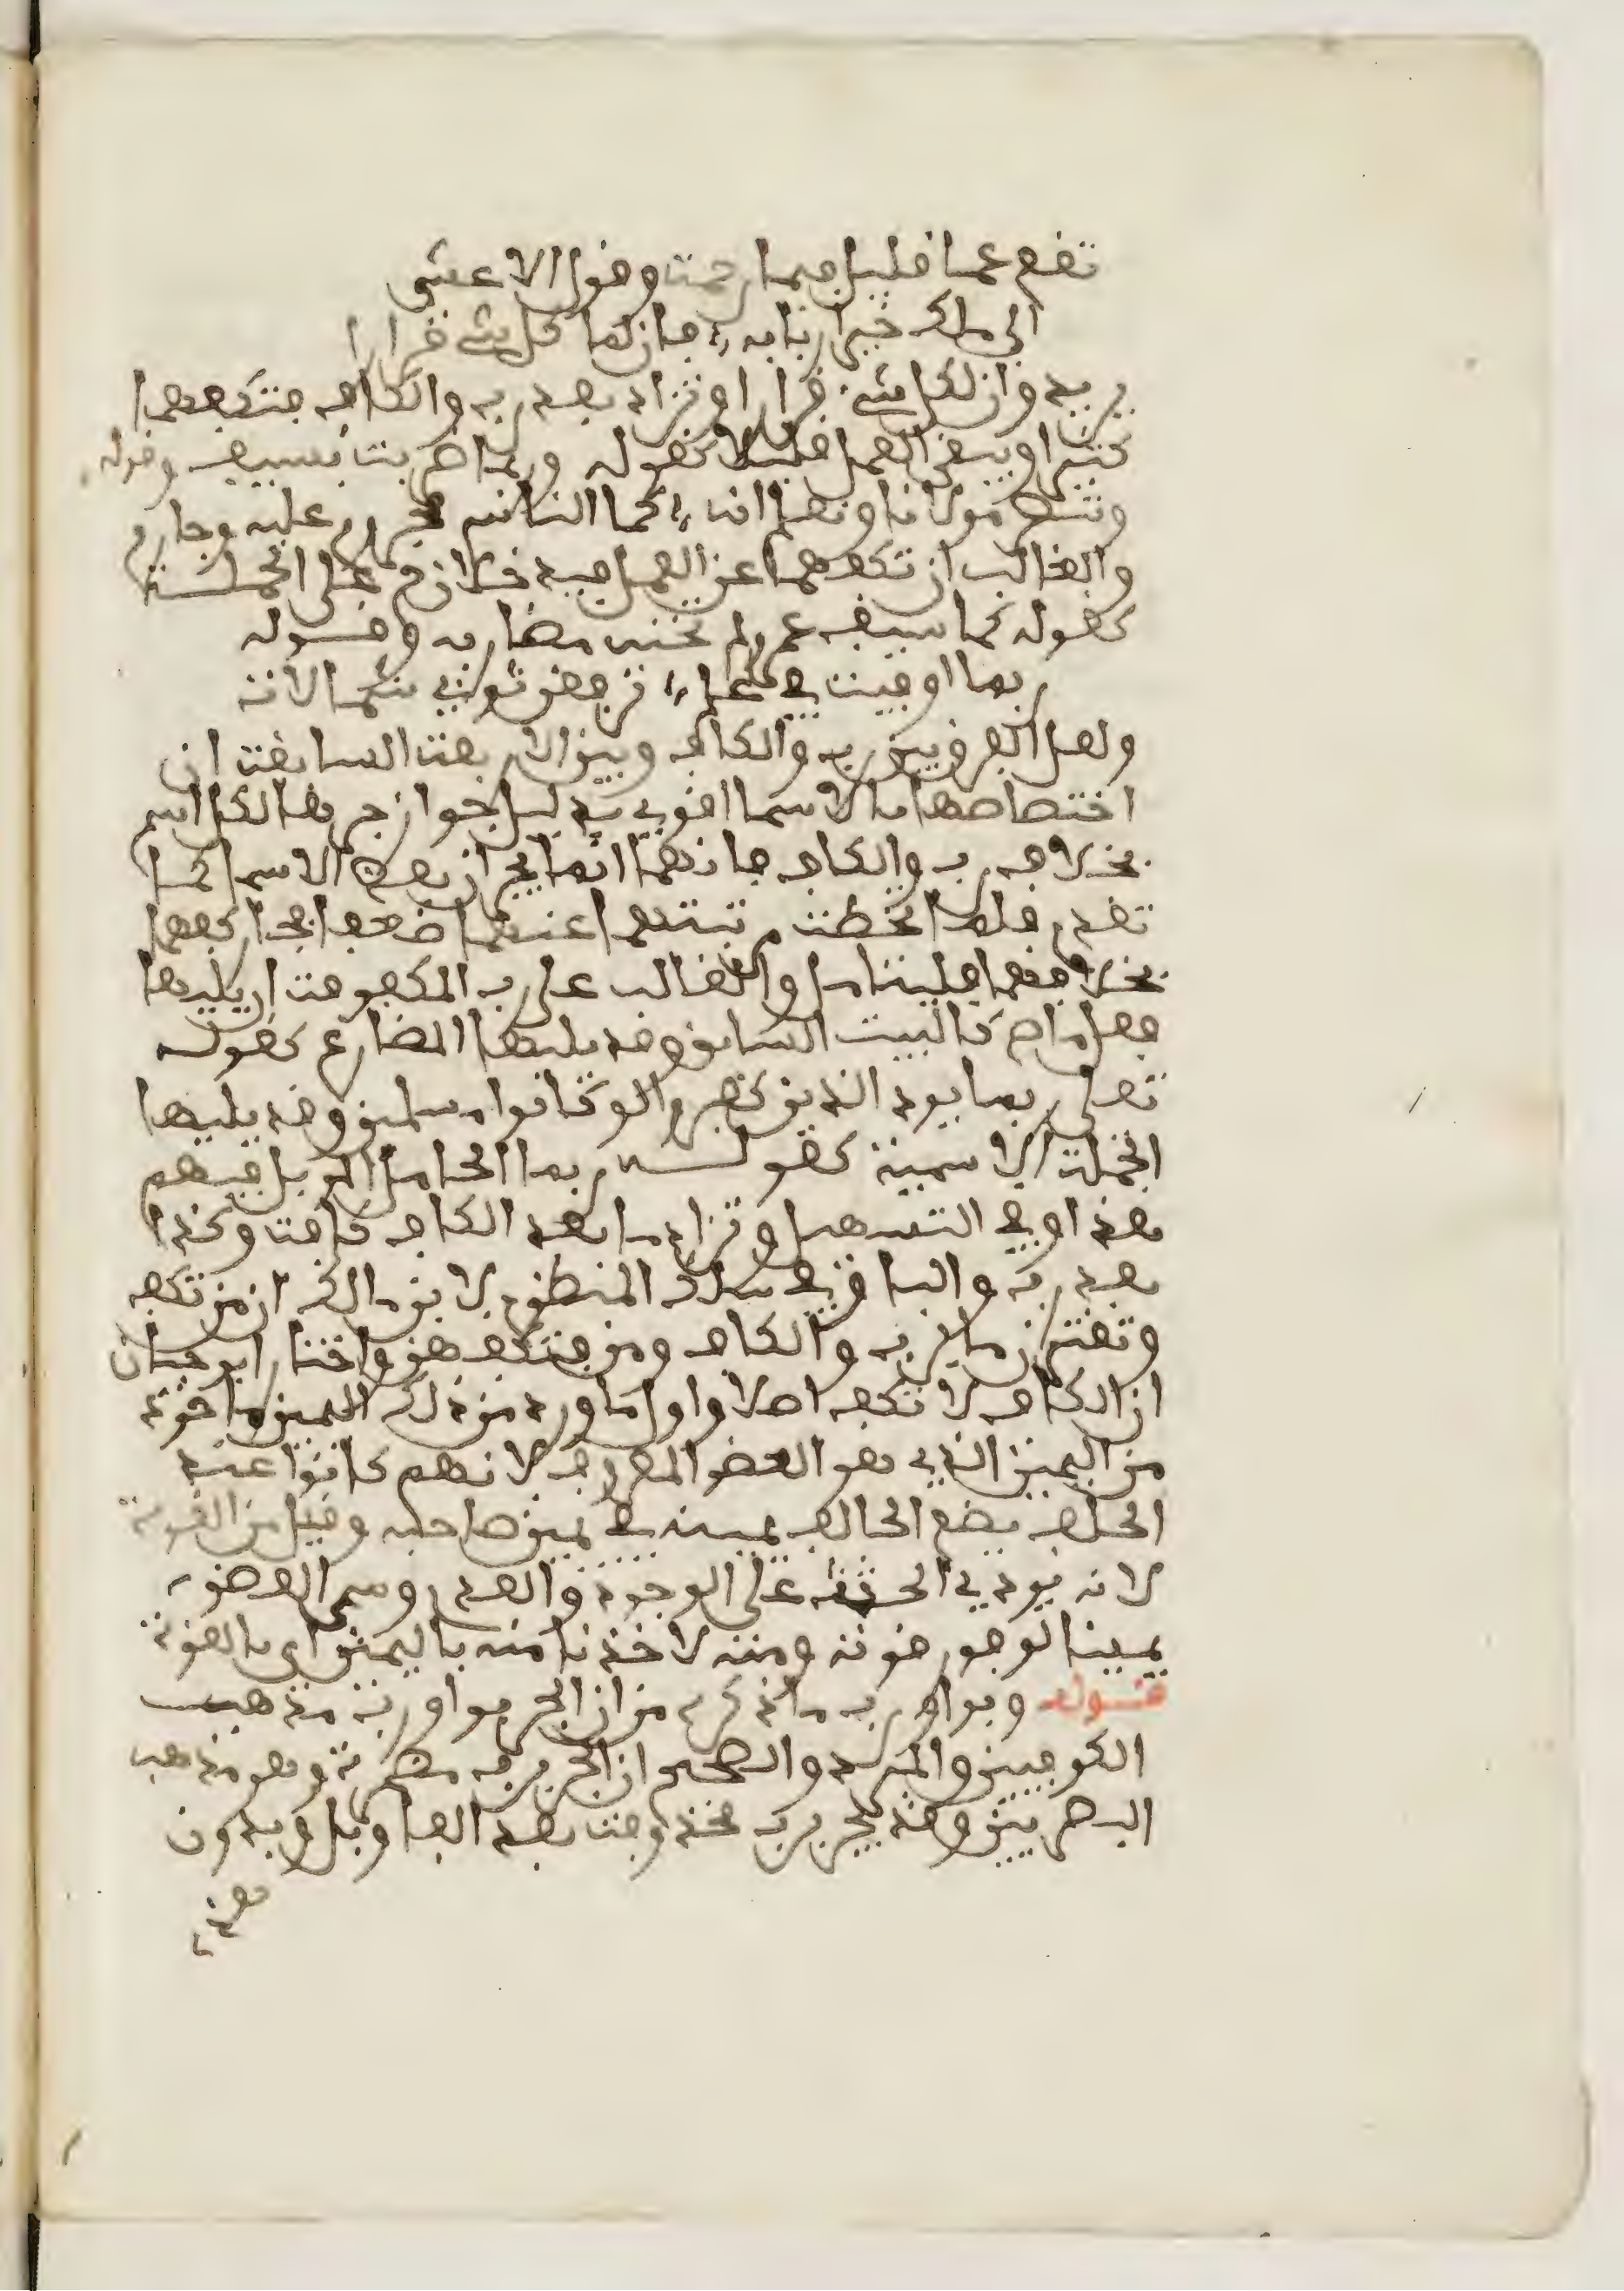 تقع عما قليل فبما رحمت وقول الاعشى
الى ملك خير اربابه فان لما كل شي قرارا
يريد وان لكل شيء قرارا وتزاد بعد رب والكاف فتكفهما
كثيرا ويبقى العمل قليلا كقوله ربما ضربت بسيف وقوله
وننصر مولانا ونعلم انه كما الناس مجروم عليه وجارم
والغالب ان تكفهما عن العمل فيدخلان على الجملة
كقوله كما سيف عمرو لم تخنه مضاربه وقوله
ربما اوفيت في علم ترفعن ثوبي شمالات
ولعل الفرق بين رب والكاف وبين الاربعة السابقة ان
اختصاصها بالاسما اقوى بدليل جواز جرها لكل اسم
بخلاف رب والكاف فانهما انما يجران بعض الاسما كما
تقدم فلما انحطت رتبتهما عنهما ضعفا فجاز كفهما
بخلافهما فليتامل والغالب على رب المكفوفة ان يليها
فعل ماض كالبيت السابق وقد يليها المضارع كقوله
تعلى ربما يود الذين كفروا لو كانوا مسلمين وقد يليها
الجملة الاسمية كقوله ربما الجامل الموبل فيهم
بعد او في التسهيل وتزاد ما بعد الكاف كافة وكذا
بعد رب والبا في سلك المنظوم لابن مالك ان من تكف
وتقترن ما برب والكاف ومن فتكفهن واختار ابو حيان
ان الكاف لا تكف اصلا واول ما ورد من ذلك اليمين ماخوذة
من اليمين الذي هو العضو المعروف لانهم كانوا عند
الحلف يضع الحالف يمينه في يمين صاحبه وقيل من القوة
لانه يودي الحنث على الوجود والعدم وسمي العضو
يمينا لوفور قوته ومنه لاخذنا منه باليمين اي بالقوة
قوله وبواو رب ما ذكره من ان الجر بواو رب مذهب
الكوفيين والمبرد والصحيح ان الجر برب مضمرة وهو مذهب
البصريين وقد يجر برب محذوفة بعد الفا وبل وبدون